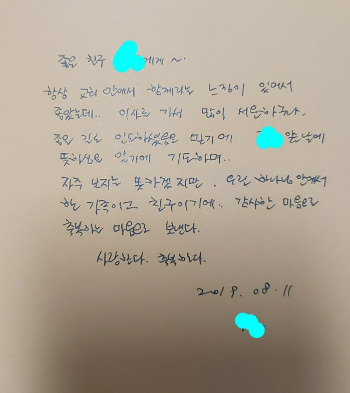 좋은 친구 에게~
항상 교회 안에서 함께라는 느낌이 있어서
좋았는데.. 이사로 가서 많이 서운하구나.
좋은 길로 인도하셨음을 믿기에 앞날에
뜻하심을 알기에 기도하며..
자주 보지는 못하겠지만, 우린 하나님 안에서
한 가족이고 친구이기에.. 감사한 마음으로
축복하는 마음으로 보낸다.
사랑한다. 축복한다.
2019. 08. 11